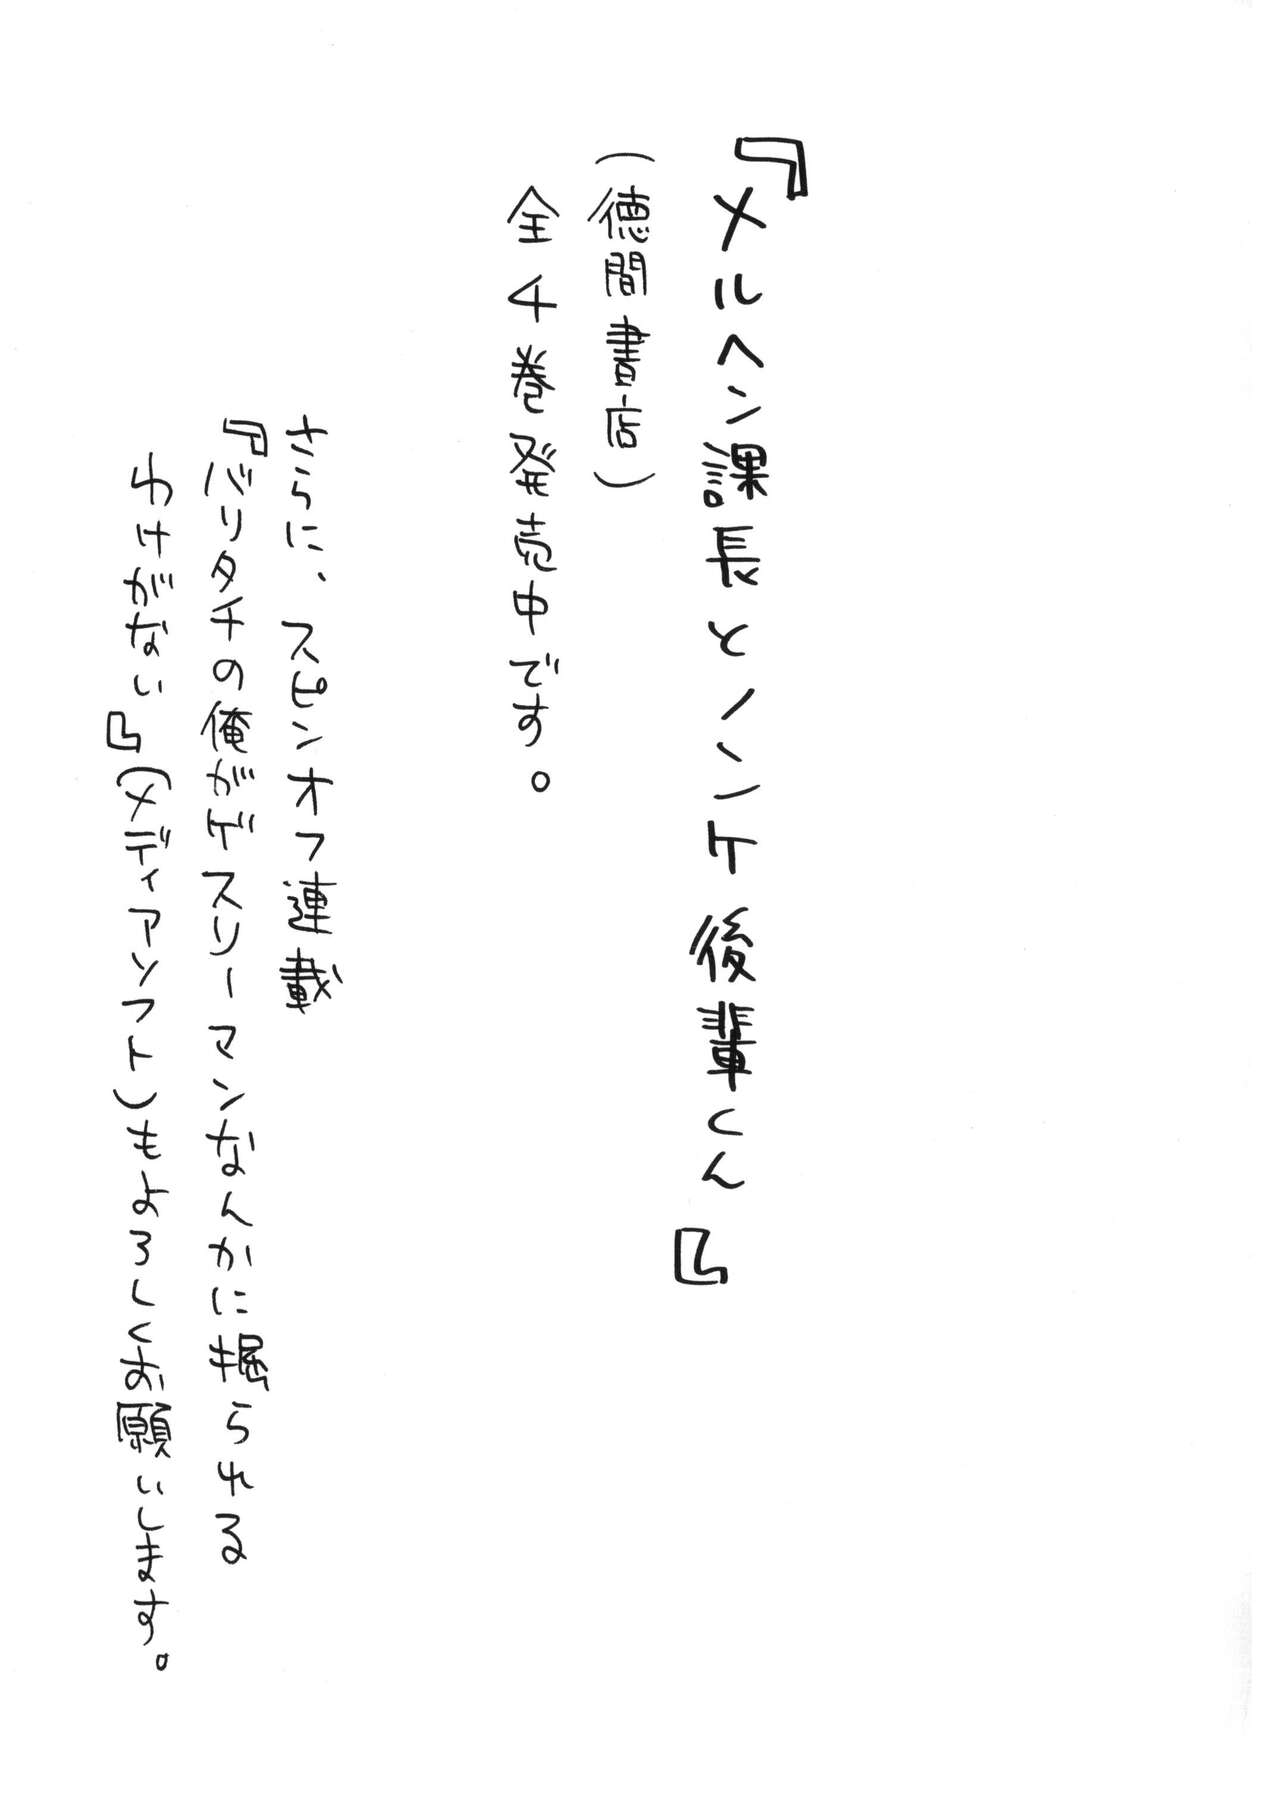 『メルヘン課長とノンケ後輩くん』
(徳間書店)
全4巻発売中です。
さらに、スピンオフ連載
『バリタチの俺がゲスリーマンなんかに掘られる
わけがない』(メディアソフト)もよろしくお願いします。